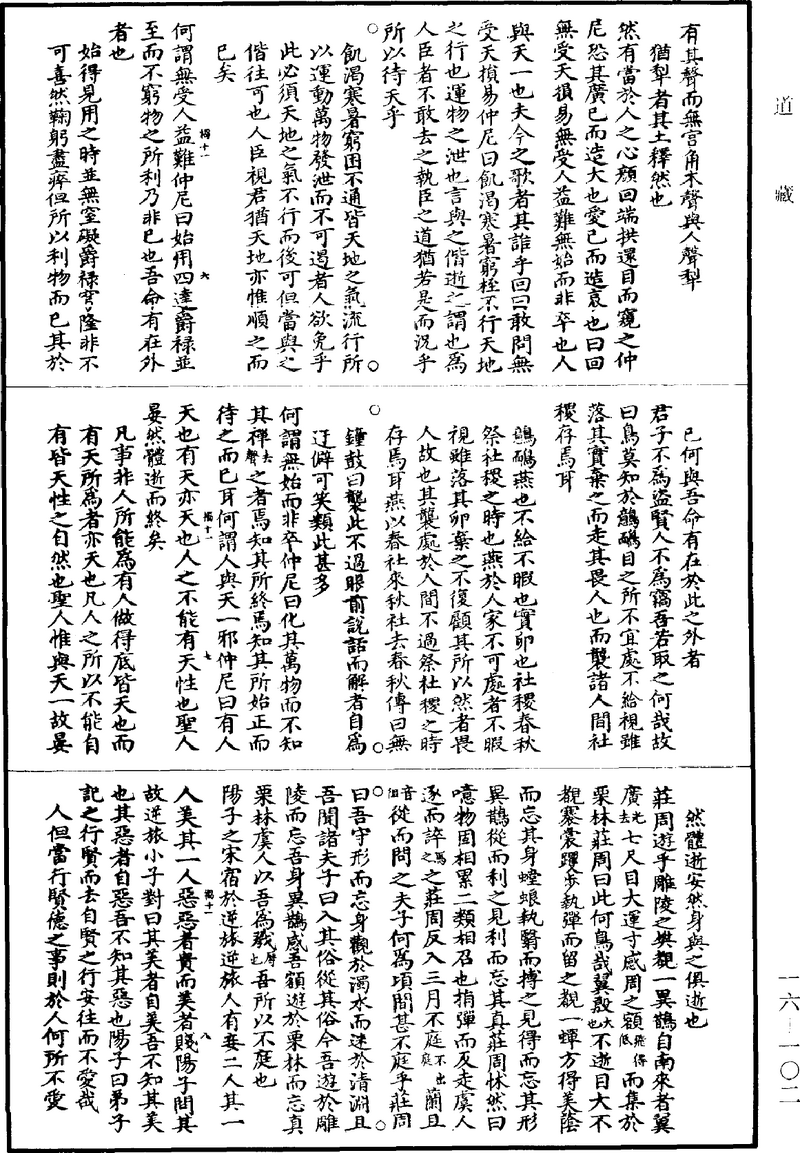 道藏
有其聲而無宮角木聲與人聲犁
猶犁者其土釋然也
然有當於人之心顏回端拱還目而窺之仲
尼恐其廣已而造大也愛已而造哀也曰回
無受天損易無受人益難無始而非卒也人
與天一也夫今之歌者其誰乎回曰敢問無
受天損易仲尼曰飢渴寒暑窮桎不行天地
之行也運物之泄也言與之偕逝之謂也為
人臣者不敢去之執臣之道猶若是而況乎
所以待天乎
飢渴寒暑窮困不通皆天地之氣流行所
以運動萬物發泄而不可遏者人欲免乎
此必須天地之氣不行而後可但當與之
偕往可也人臣視君猶天地亦惟順之而
已矣
何謂無受人益難仲尼曰始用四達爵祿並
至而不窮物之所利乃非已也吾命有在外
者也
始得見用之時並無窒礙爵祿穹隆非不
可喜然鞠躬盡瘁但所以利物而已其於
已何與吾命有在於此之外者
君子不為盜賢人不為竊吾若取之何哉故
曰鳥莫知於鷾鴯目之所不宜處不給視雖
落其實棄之而走其畏人也而襲諸人間社
稷存焉耳
鷾鴯燕也不給不暇也實卵也社稷春秋
祭社稷之時也燕於人家不可處者不暇
視雖落其卵棄之不復顧其所以然者畏
人故也其襲處於人間不過祭社稷之時
存焉耳燕以春社來秋社去春秋傳曰無
鐘鼓曰襲此不過眼前說話而解者自為
迂僻可笑類此甚多
何謂無始而非卒仲尼曰化其萬物而不知
其禪去聲之者焉知其所終焉知其所始正而
待之而已耳何謂人與天一邪仲尼曰有人
天也有天亦天也人之不能有天性也聖人
晏然體逝而終矣
凡事非人所能為有人做得底皆天也而
有天所為者亦天也凡人之所以不能自
有皆天性之自然也聖人惟與天一故晏
然體逝安然身與之俱逝也
莊周遊乎雕陵之樊覩一異鵲自南來者翼
廣去七尺目大運寸感周之顙而集於
栗林莊周曰此何鳥哉翼殷大也不逝目大不
覩褰裳躩步執彈而留之覩一蟬方得美蔭
而忘其身螳螂執翳而搏之見得而忘其形
異鵲從而利之見利而忘其真莊周怵然曰
噫物固相累二類相召也捐彈而反走虞人
逐而誶之莊周反入三月不庭不出庭藺且
音沮從而問之夫子何為頃間甚不庭乎莊周
曰吾守形而忘身觀於濁水而迷於清淵且
吾聞諸夫子曰入其俗從其俗今吾遊於雕
陵而忘吾身異鵲感吾顙遊於栗林而忘真
栗林虞人以吾為戮辱也吾所以不庭也
陽子之宋宿於逆旅逆旅人有妾二人其一
人美其一人惡惡者貴而美者賤陽子問其
故逆旅小子對曰其美者自美吾不知其美
也其惡者自惡吾不知其惡也陽子曰弟子
記之行賢而去自賢之行安往而不愛哉
人但當行賢德之事則於人何所不愛
一六—一〇二